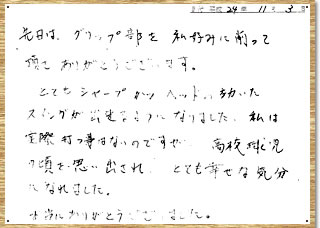 平成 24年 11月 3日
先日は、グリップ部を 私好みに削って
頂き ありがとうございます。
とても シャープ かつ ヘッドの効いた
スイングが出来るようになりました。私は
実際 打つ事はないのですが、高校球児
の頃を 思い出され、とても幸せな気分
になれました。
本当にありがとうございました。